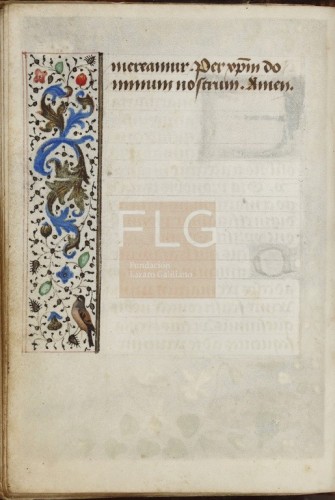 mereamur. Per xp̄m do
minum nostrum. Amen.
FLG
Fundación
Lázaro Galdiano